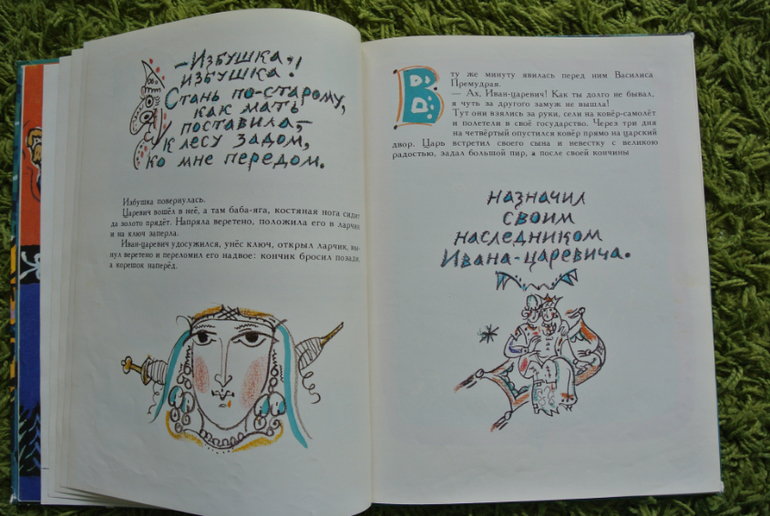 -Избушка,
избушка!
Стань по-старому,
как мать
поставила,-
К лесу задом,
ко мне передом.
Избушка повернулась.
Царевич вошёл в неё, а там баба-яга, костяная нога сидит
да золото прядёт. Напряла веретено, положила его в ларчик
и на ключ заперла.
Иван-царевич удосужился, унёс ключ, открыл ларчик, вы-
нул веретено и переломил его надвое: кончик бросил позади,
а корешок наперёд.
В ту же минуту явилась перед ним Василиса
Премудрая.
— Ах, Иван-царевич! Как ты долго не бывал,
я чуть за другого замуж не вышла!
Тут они взялись за руки, сели на ковёр-самолёт
и полетели в своё государство. Через три дня
на четвёртый опустился ковёр прямо на царский
двор. Царь встретил своего сына и невестку с великою
радостью, задал большой пир, а после своей кончины
назначил
своим
наследником
Ивана-царевича.